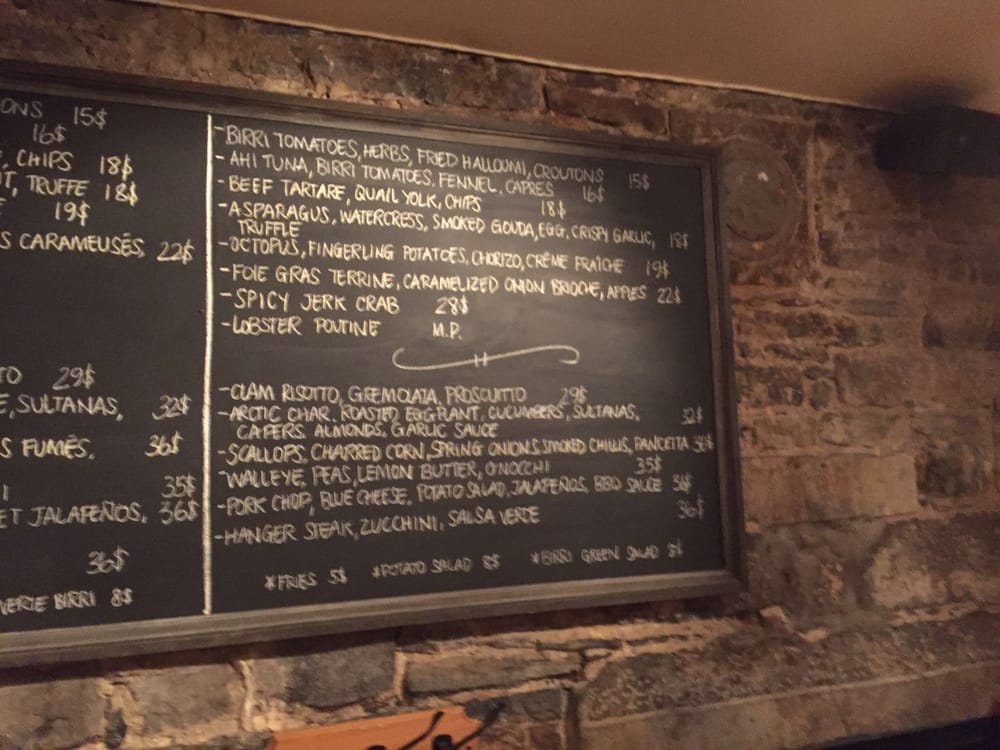 ONS 15$
16$
, CHIPS 18$
T, TRUFFE 18$
19$
S CARAMELISÉS, 22$
TO 29$
E, SULTANAS, 32$
S FUMÉS, 36$
I 35$
ET JALAPEÑOS, 36$
36$
VERTE BIRRI 8$
-BIRRI TOMATOES, HERBS, FRIED HALLOUMI, CROUTONS 15$
-AHI TUNA, BIRRI TOMATOES, FENNEL, CAPRES 16$
-BEEF TARTARE, QUAIL YOLK, CHIPS 18$
-ASPARAGUS, WATERCRESS, SMOKED GOUDA, EGG, CRISPY GARLIC, 18$
TRUFFLE
-OCTOPUS, FINGERLING POTATOES, CHORIZO, CRÈME FRAICHE 19$
-FOIE GRAS TERRINE, CARAMELIZED ONION BRIOCHE, APPLES 22$
-SPICY JERK CRAB 28$
-LOBSTER POUTINE M.P.
-CLAM RISOTTO, GREMOLATA, PROSCUITTO 29$
-ARCTIC CHAR, ROASTED EGGPLANT, CUCUMBERS, SULTANAS, 32$
CAPERS, ALMONDS, GARLIC SAUCE
-SCALLOPS, CHARRED CORN, SPRING ONIONS, SMOKED CHILLIS, PANCETTA 36$
-WALLEYE, PEAS, LEMON BUTTER, GNOCCHI 35$
-PORK CHOP, BLUE CHEESE, POTATO SALAD, JALAPEÑOS, BBQ SAUCE 36$
-HANGER STEAK, ZUCCHINI, SALSA VERDE 36$
*FRIES 5$ *POTATO SALAD 8$ *BIRRI GREEN SALAD 8$